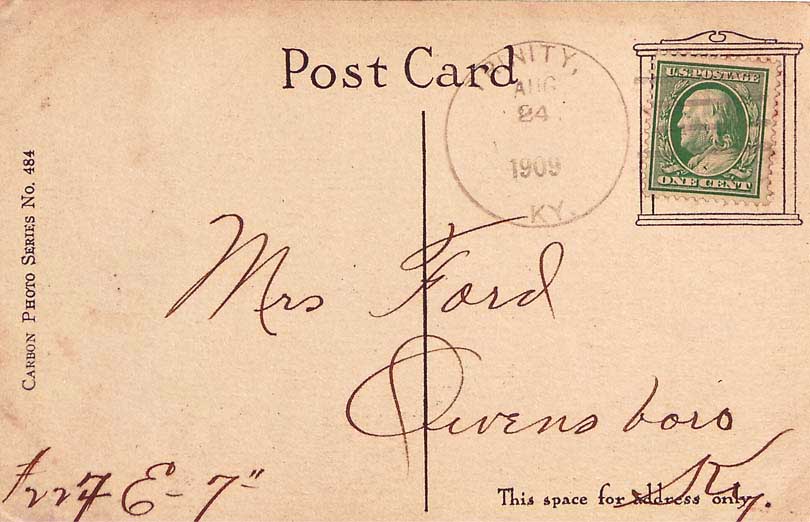 Post Card
TRINITY,
AUG
24
1909
KY.
U.S. POSTAGE
ONE CENT
CARBON PHOTO SERIES NO. 484
Mrs Ford
Owensboro
Ky.
E - 7"
This space for address only.